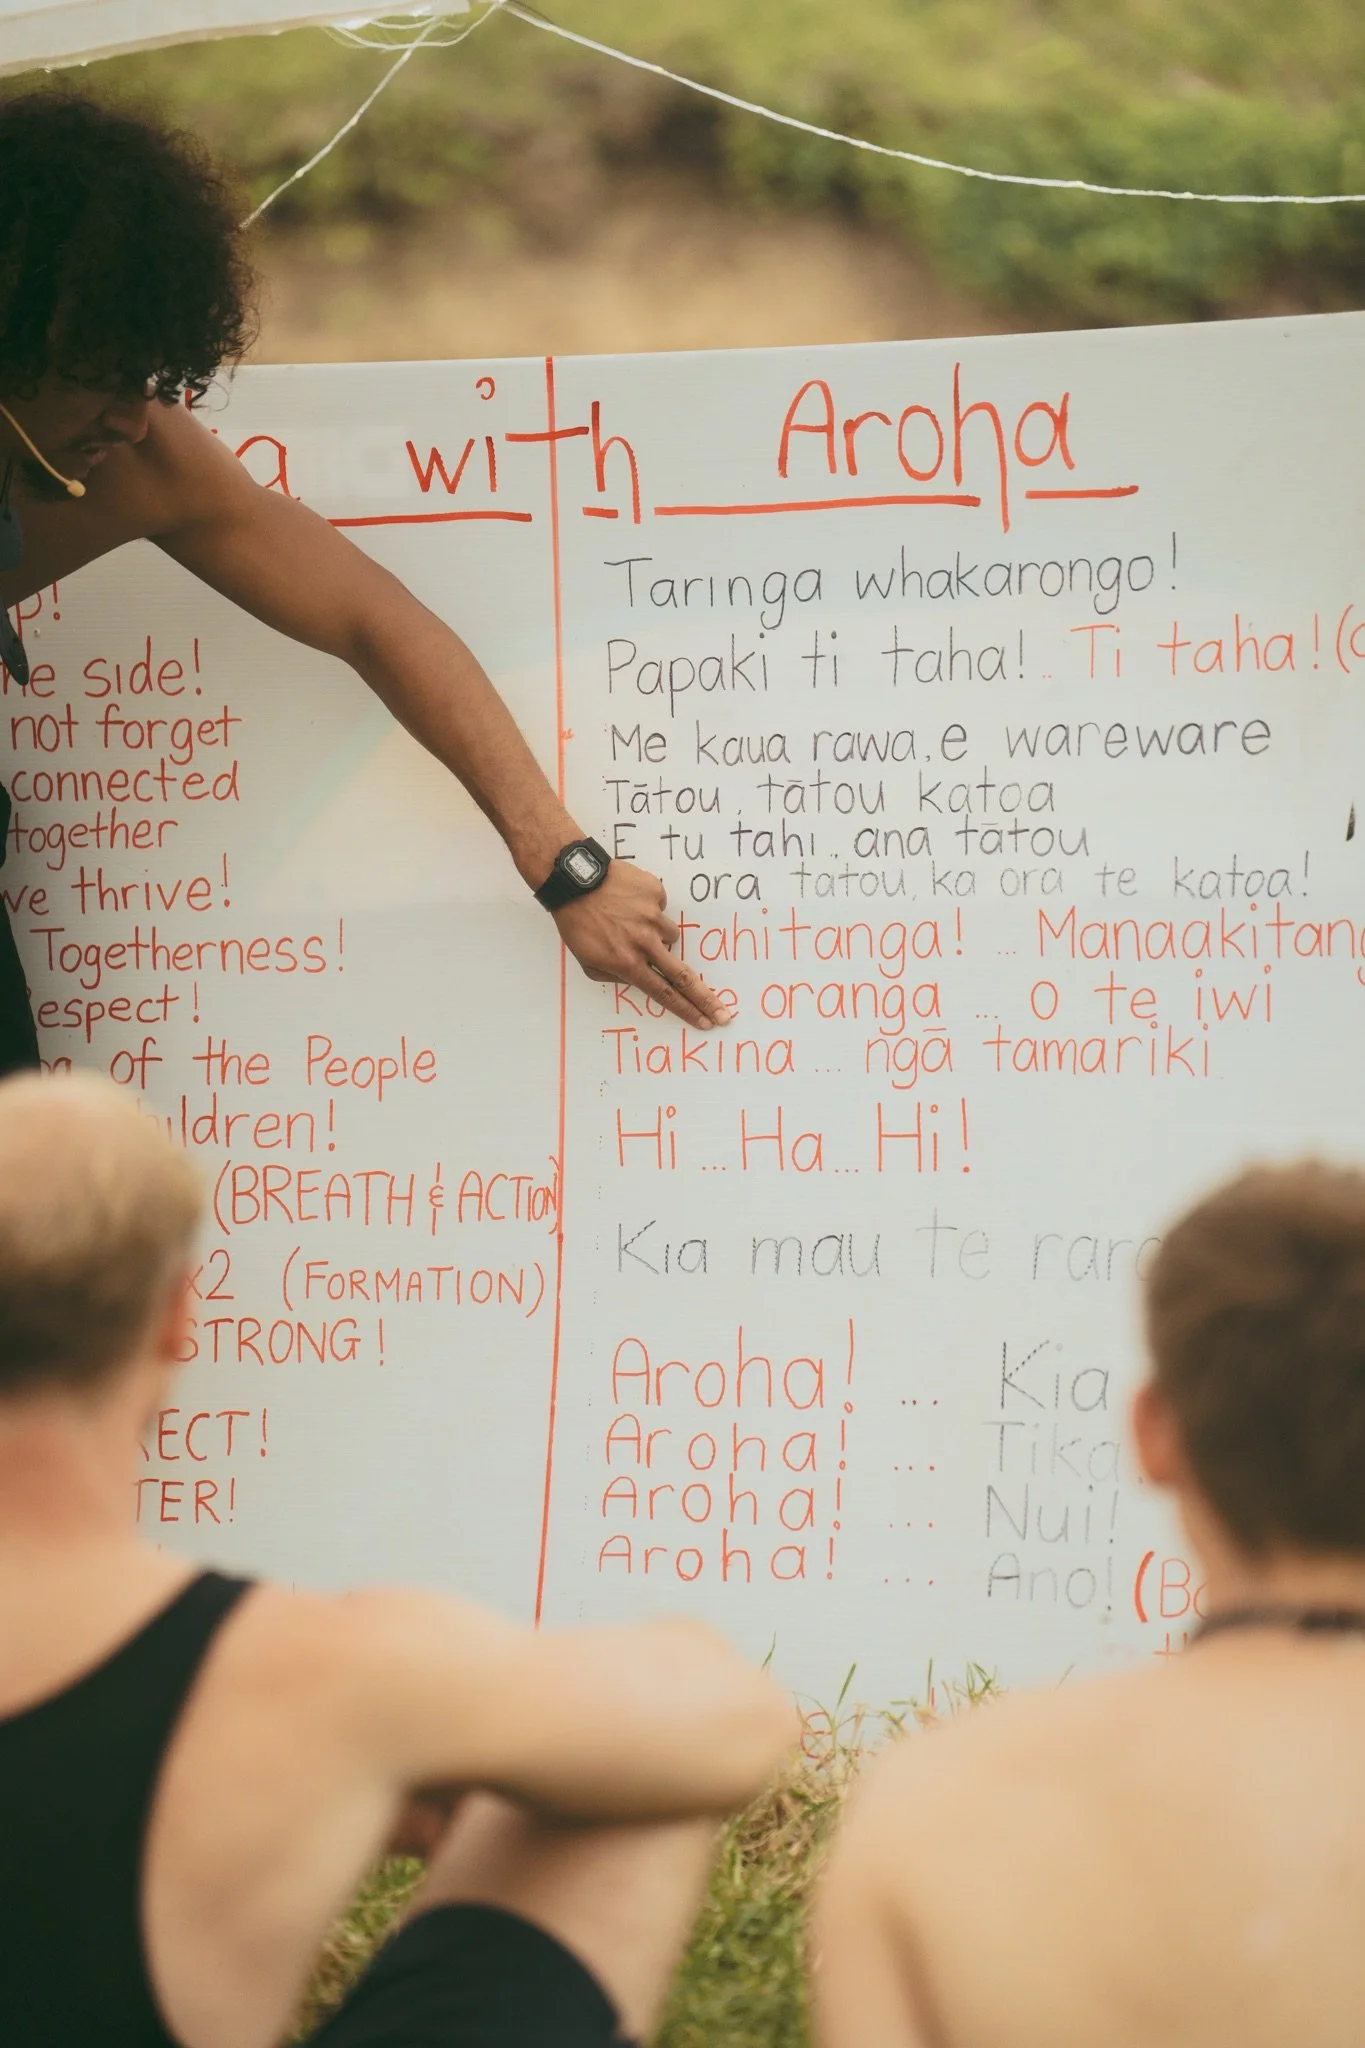 with Aroha
side!
not forget
connected
together
thrive!
Togetherness!
of the People
(BREATH & ACTION)
x2 (FORMATION)
STRONG!
Taringa whakarongo!
Papaki ti taha! .. Ti taha! (
Me kaua rawa, e wareware
Tātou, tātou katoa
E tu tahi .. ana tātou
ora tatou, ka ora te katoa!
...
oranga ... o te iwi
Tiakina ... ngā tamariki
Hi ... Ha ... Hi!
Kia mau te
Aroha! ... Kia
Aroha! ... Tika
Aroha! ... Nui!
Aroha! ... Ano! (